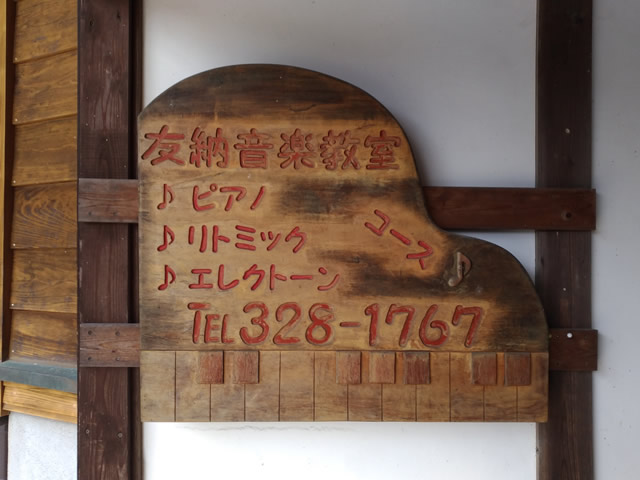 友納音楽教室
♪ ピアノ
♪ リトミック
♪ エレクトーン
コース♪
TEL 328-1767